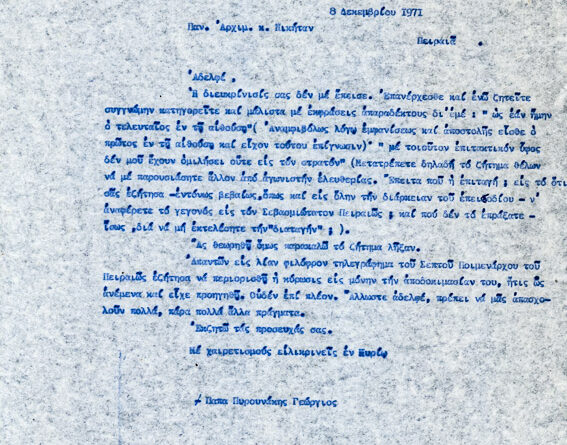 8 Δεκεμβρίου 1971
Παν. Ἀρχιμ. κ. Νικήταν
Πειραιᾶ .
Ἀδελφέ,
Ἡ διευκρίνισίς σας δέν μέ ἔπεισε. Ἐπανέρχεσθε καί ἐνῶ ζητεῖτε
συγγνώμην κατηγορεῖτε καί μάλιστα μέ ἐκφράσεις ἀπαραδέκτους δι ἐμέ : " ὡς ἐάν ἤμην
ὁ τελευταῖος ἐν τῇ αἰθούσῃ"( Ἀναμφιβόλως λόγῳ ἐμφανίσεως καί ἀποστολῆς εἶσθε ὁ
πρῶτος ἐν τῇ αἰθούσῃ καί εἶχον τούτου ἐπίγνωσιν)" " μέ τοιοῦτον ἐπιτακτικόν ὕφος
δέν μοῦ ἔχουν ὁμιλήσει οὔτε εἰς τόν στρατόν" (Μετατρέπετε δηλαδή τό ζήτημα θέλων
νά μέ παρουσιάσητε ἄλλον ἀπό ἀγωνιστήν ἐλευθερίας. Ἔπειτα ποῦ ἡ ἐπιταγή ; εἰς τό ὅτι
σᾶς ἐζήτησα -ἐντόνως βεβαίως, ὅπως καί εἰς ὅλην τήν διάρκειαν τοῦ ἐπεισοδίου - ν'
ἀναφέρετε τό γεγονός εἰς τόν Σεβασμιώτατον Πειραιῶς ; καί πού δέν τό ἐπράξατε -
ἴσως ,διά νά μή ἐκτελέσητε τήν"διαταγήν" ; ).
Ἄς θεωρηθῇ ὅμως παρακαλῶ τό ζήτημα λῆξαν.
Ἀπαντῶν εἰς λίαν φιλόφρον τηλεγράφημα τοῦ Σεπτοῦ Ποιμενάρχου τοῦ
Πειραιῶς ἐζήτησα νά περιορισθῇ ἡ κύρωσις εἰς μόνην τήν ἀποδοκιμασίαν του, ἥτις ὡς
ἀνέμενα καί εἶχε προηγηθῇ. Οὐδέν ἐπί πλέον. Ἄλλωστε ἀδελφέ, πρέπει νά μᾶς ἀπασχο-
λοῦν πολλά, πάρα πολλά ἄλλα πράγματα.
Ἐκζητῶ τάς προσευχάς σας.
Μέ χαιρετισμούς εἰλικρινεῖς ἐν Κυρίῳ
Παπα Πυρουνάκης Γεώργιος